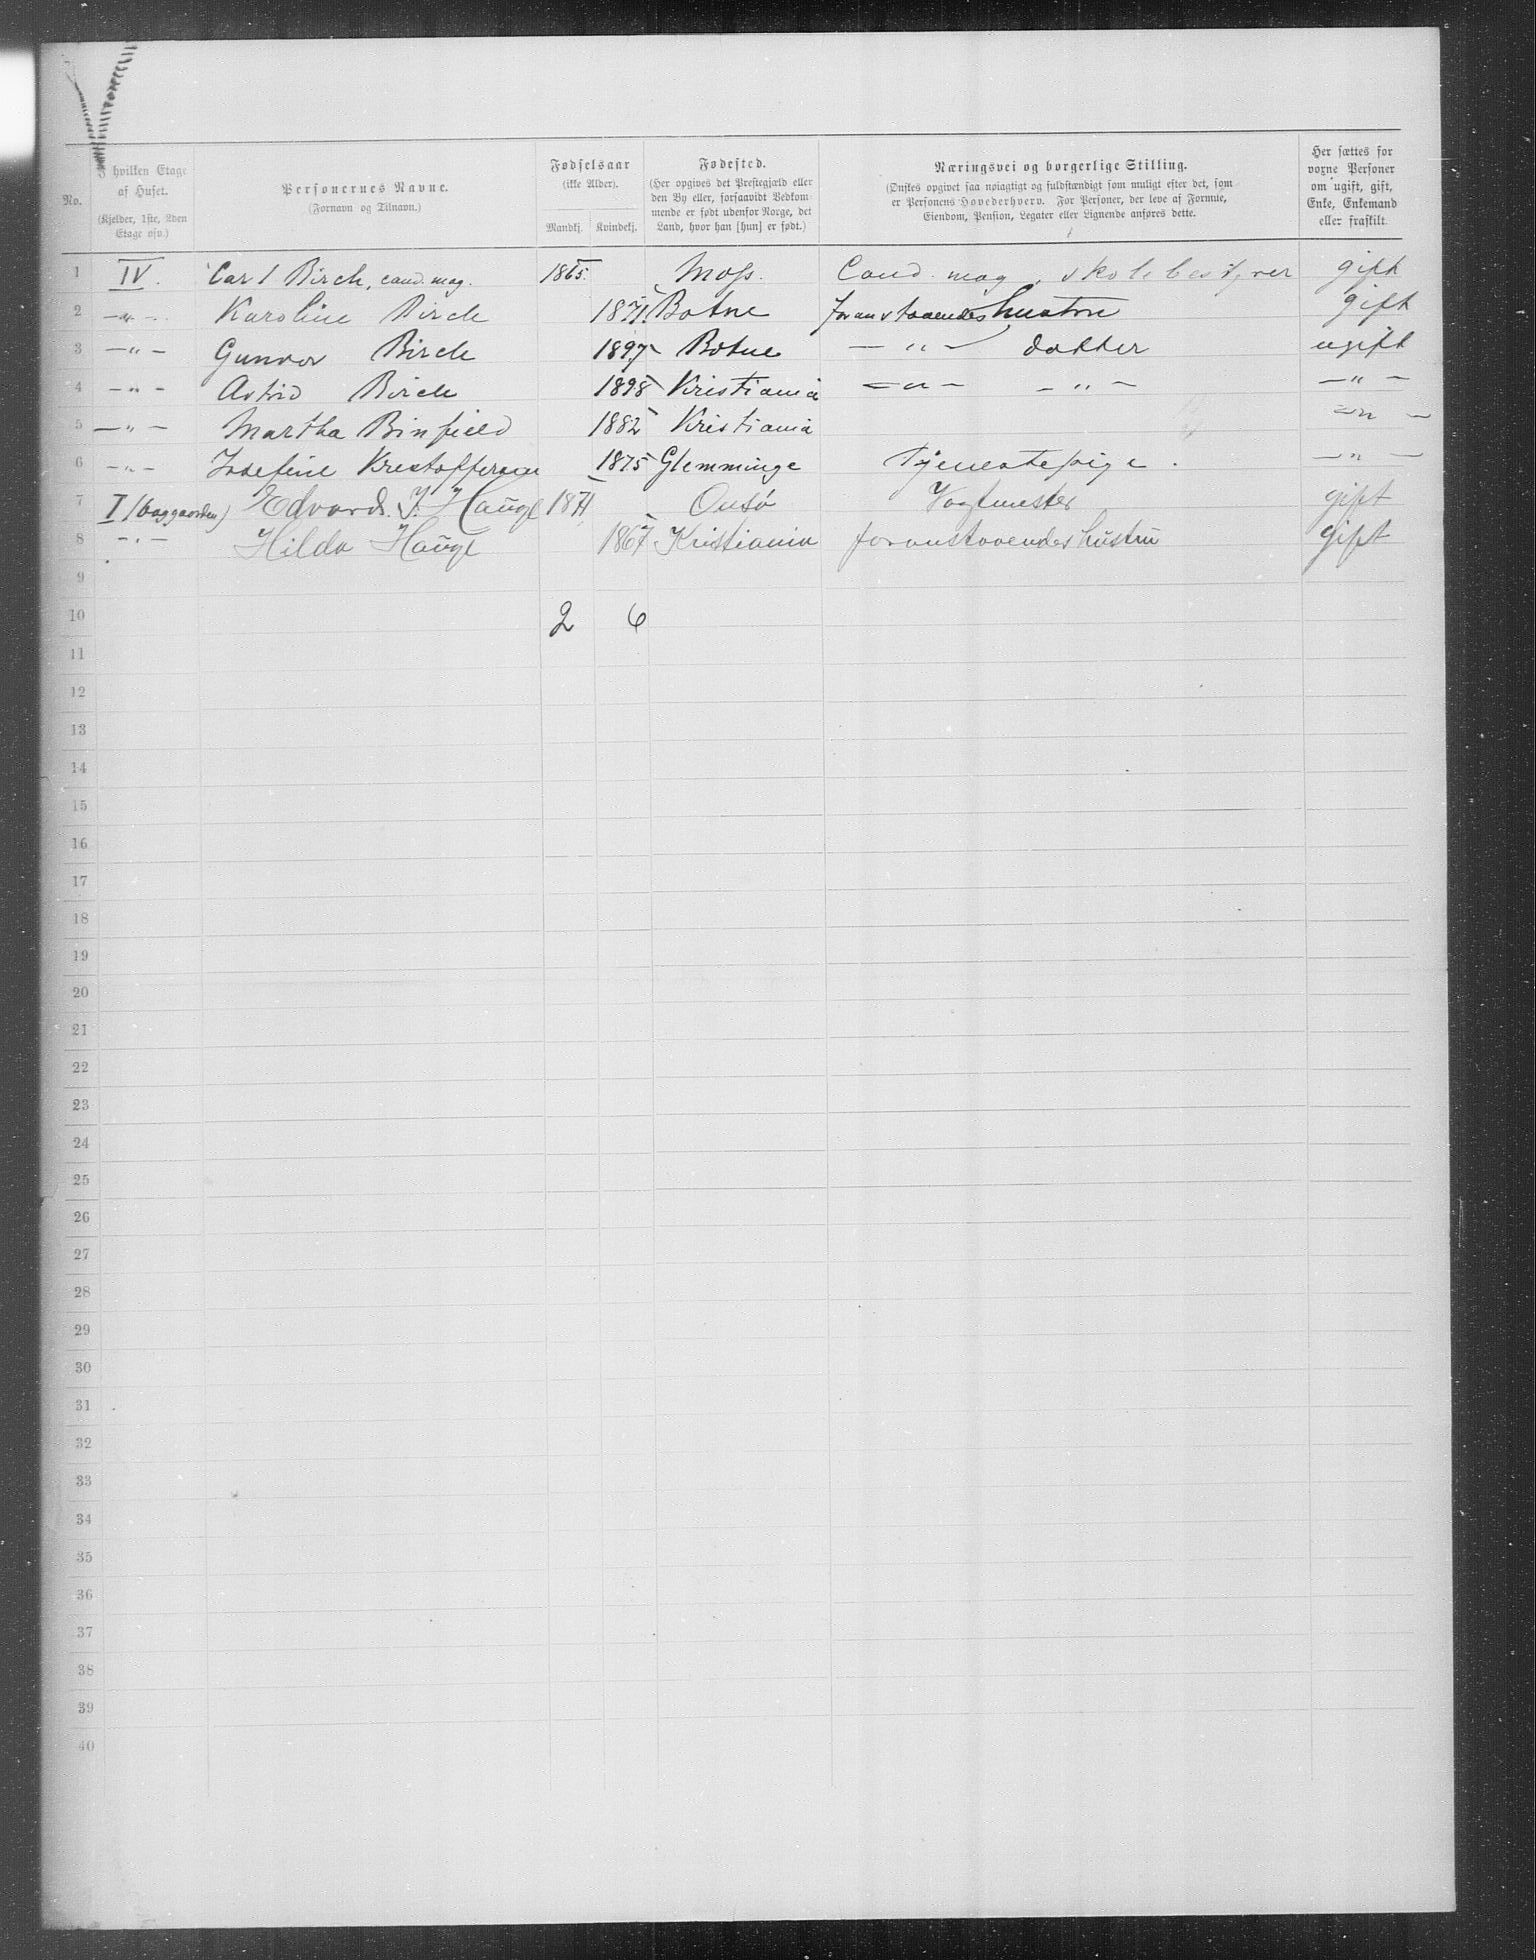 No.
I hvilken Etage af Huset. (Kjelder, 1ste, 2den Etage osv.)
Personernes Navne. (Fornavn og Tilnavn.)
Fødselsaar (ikke Alder). Mandkj. Kvindekj.
Fødested. (Her opgives det Prestegjæld eller den By eller, forsaavidt Vedkommende er født udenfor Norge, det Land, hvor han [hun] er født.)
Næringsvei og borgerlige Stilling. (Ønskes opgivet saa nøiagtigt og fuldstændigt som muligt efter det, som er Personens Hovederhverv. For Personer, der leve af Formue, Eiendom, Pension, Legater eller Lignende anføres dette.
Her sættes for voxne Personer om ugift, gift, Enke, Enkemand eller fraskilt.
1 IV. Carl Birch, cand. mag. 1865. Moss. Cand. mag, skolebestyrer gift
2 —"— Karoline Birch 1871. Botne foranstaaendes hustru gift
3 —"— Gunvor Birch 1897 Botne —"— datter ugift
4 —"— Astrid Birch 1898 Kristiania —"— —"— —"—
5 —"— Martha Binfield 1882 Kristiania —"—
6 —"— Josefine Kristoffersen 1875 Glemminge Tjenestepige. —"—
7 I (baggaarden) Edvard. J. Haugl 1871 Onsø Vogtmester gift
8 —"— Hilda Haugl 1867 Kristiania foranstaaendes hustru gift
9
10 2 6
11
12
13
14
15
16
17
18
19
20
21
22
23
24
25
26
27
28
29
30
31
32
33
34
35
36
37
38
39
40